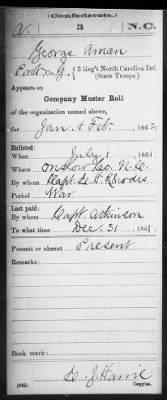 (Confederate.)
a 3 N.C.
George Aman
Pvt, Co. , 3 Reg't North Carolina Inf.
(State Troops.)
Appears on
Company Muster Roll
of the organization named above,
for Jan & Feb, 1862
Enlisted:
When July 1, 1861.
Where Onslow Co. N.C.
By whom Capt. Rhodes
Period War
Last paid:
By whom Capt. Atkinson
To what time Dec. 31, 1861.
Present or absent Present
Remarks:
(642) Copyist.